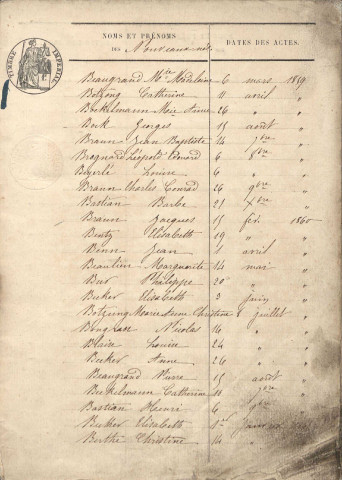 TIMBRE IMPÉRIAL
NOMS ET PRÉNOMS
DATES DES ACTES.
DES Nouveaux-nés
Beaugrand Mie Madeleine 6 mars 1859
Botzong Catherine 11 avril "
Bockelmann Marie Anne 26 " "
Beck Georges 15 août "
Braun Jean Baptiste 14 7bre "
Brognard Léopold Edouard 6 8bre "
Bayerlé Louise 6 " "
Branon Charles Conrad 26 9bre "
Bastian Barbe 21 Xbre "
Braun Jacques 15 fév. 1860
Bentz Elisabeth 19 " "
Benn Jean 1 avril "
Beautier Marguerite 14 mai "
Bur Philippe 20 " "
Becker Elisabeth 2 juin "
Botzung Marie Anne Christine 1 juillet "
Nicolas 16 " "
Blaise Louise 24 " "
Becker Anne 26 " "
Beaugrand Pierre 15 août "
Beckelmann Catherine 10 7bre "
Bastian Henri 6 9bre "
Becker Elisabeth 1er janvier
Barthé Christine 14 "